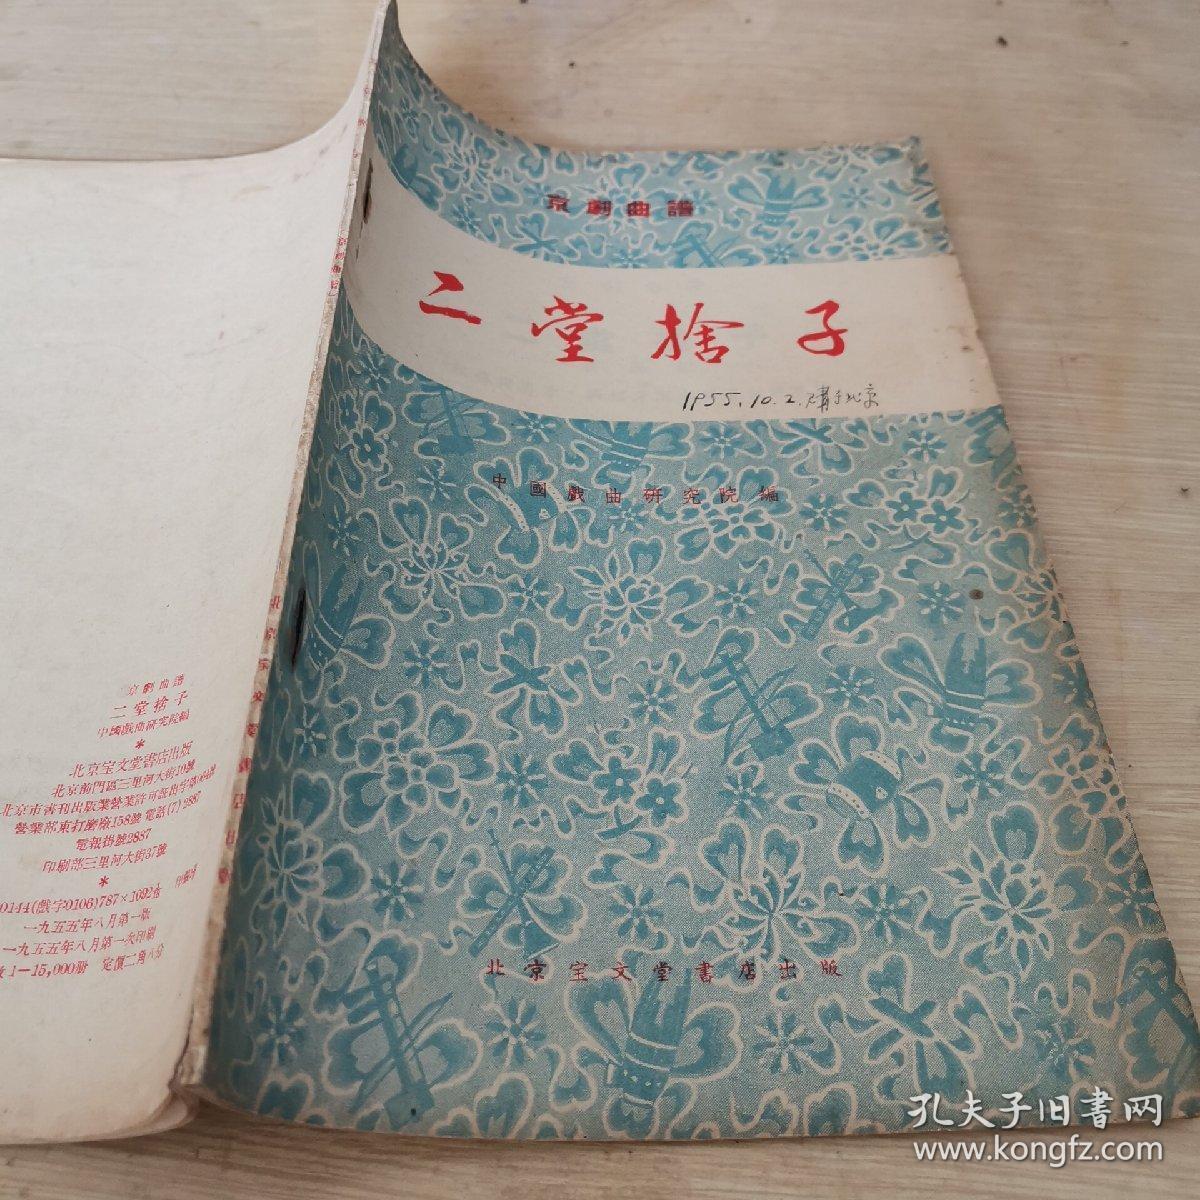 京劇曲譜
二堂捨子
1955.10.2.購于北京
中國戲曲研究院編
北京宝文堂書店出版
京劇曲譜
二堂捨子
中國戲曲研究院編
*
北京宝文堂書店出版
北京前門區三里河大街10號
北京市書刊出版業營業許可証出字第064號
營業部東打磨廠158號 電話(7)2887
電報掛號2887
印刷部三里河大街37號
*
0144(戲字0106)787×1092
一九五五年八月第一版
一九五五年八月第一次印刷
數1—15,000册 定價二角八分
孔夫子旧書网
www.kongfz.com